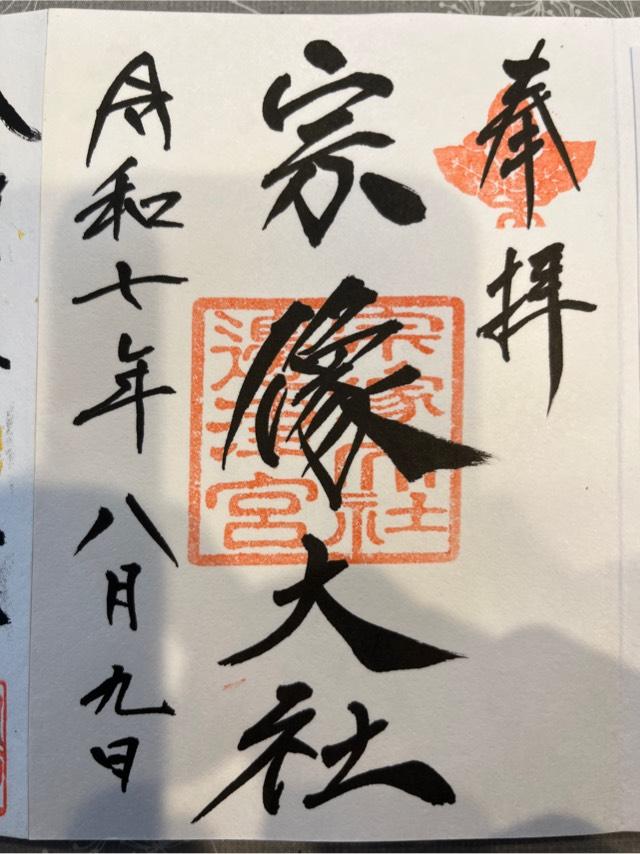 奉拝
宗像大社
宗像大社
邊津宮
令和七年八月九日